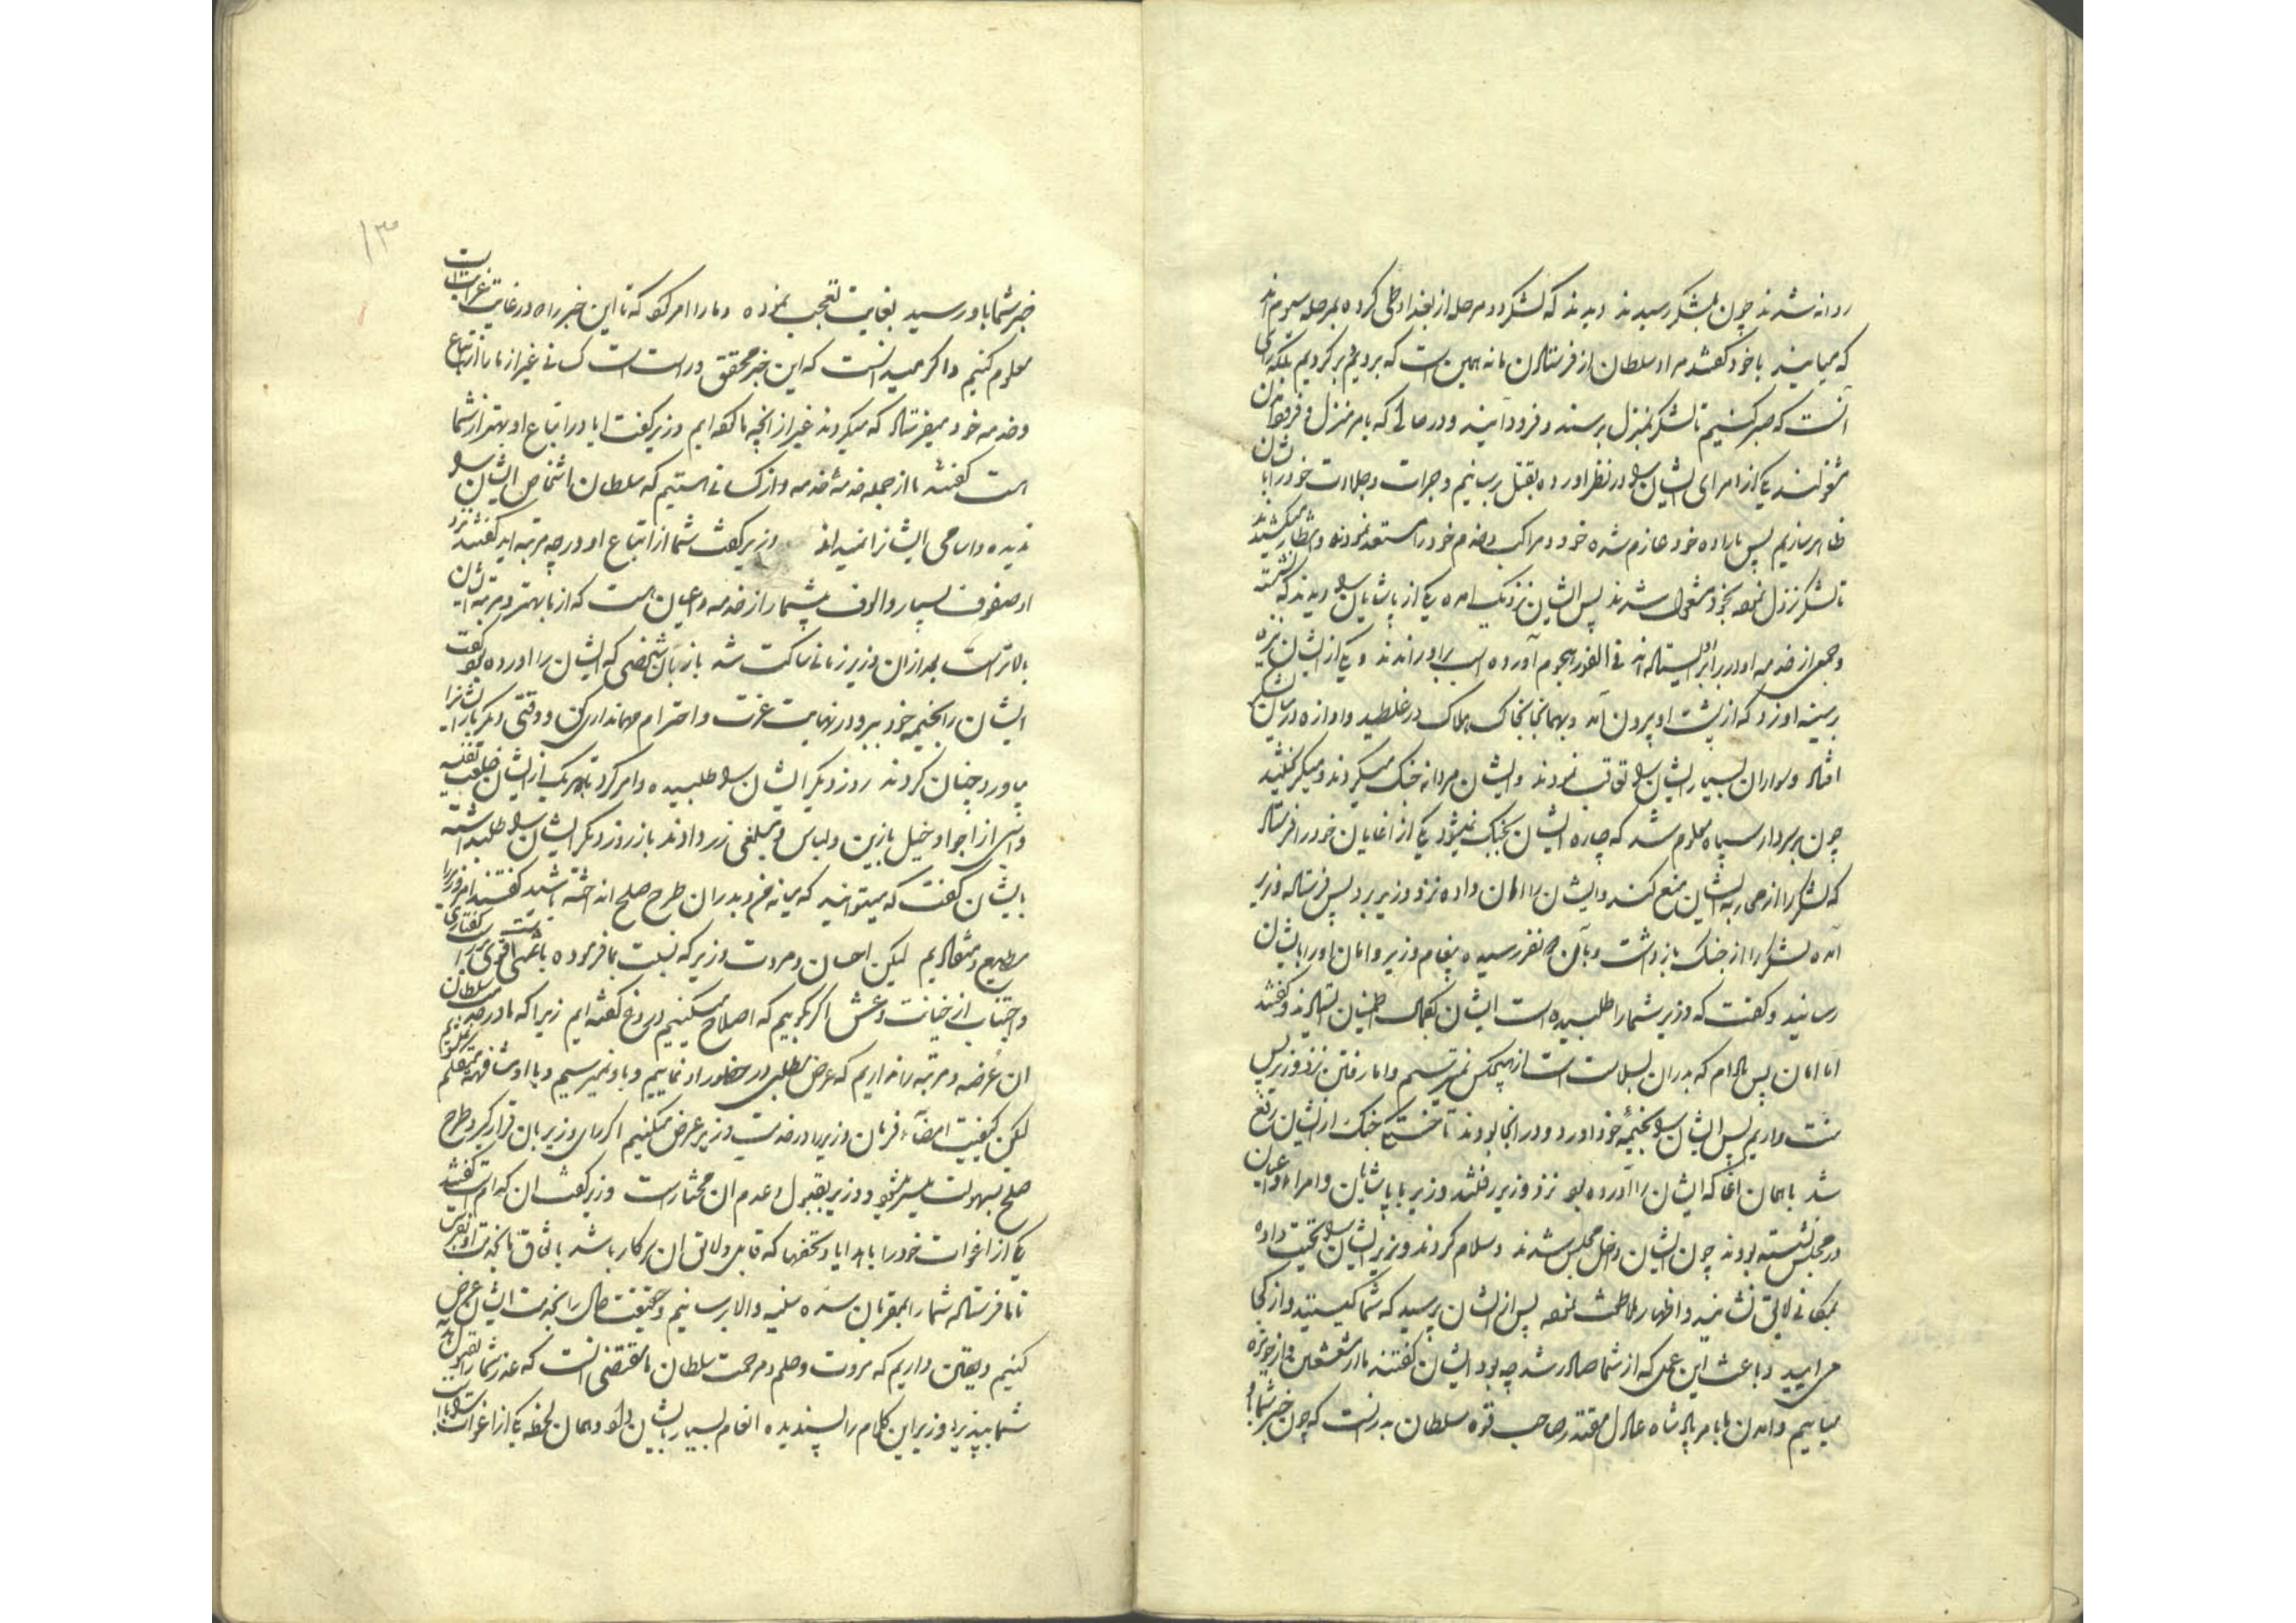 روانه شدند چون بلشکر رسیدند دیدند که لشکر دو مرحله از بغداد طی کرده بمرحله سیوم اند
که میایند با خود گفتند مراد سلطان از فرستادن ما نه همین است که برویم و برگردیم بلکه رای
آنست که صبر کنیم تا لشکر بمنزل برسند و فرود آیند و در حالی که بامر منزل و فرود آمدن
مشغولند یکی از امرای ایشان را در نظر آورده بقتل برسانیم و جرات و جلادت خود را بایشان
ظاهر سازیم پس باراده خود عازم شده خود و مراکب و خدم خود را مستعد نموده و انتظار میکشیدند
تا لشکر نزول نموده بخود مشغول شدند پس ایشان نزدیک آمده یکی از پاشایان را دیدند که نشسته
و جمعی از خدمه او در برابر او ایستاده اند فی الفور هجوم آورده اسب بر او راندند و یکی از ایشان نیزه
بر سینه او زد که از پشت او بیرون آمد و بهمانجا بخاک هلاک درغلطید و اوازه در میان لشکر
افتاد و سواران بسیار ایشان را تعاقب نمودند و ایشان مردانه جنگ میکردند و میگریختند
چون بر سردار سپاه معلوم شد که چاره ایشان بجنگ نمیشود یکی از اغایان خود را فرستاد
که لشکر را از محاربه ایشان منع کند و ایشان را امان داده نزد وزیر برد پس فرستاده وزیر
آمده لشکر را از جنگ بازداشت و بآن نفر رسیده پیغام وزیر و امان او را بایشان
رسانید و گفت که وزیر شما را طلبیده است ایشان بکمال اطمینان ایستادند و گفتند
اما امان پس مادام که بدران بسلامت است از هیچکس نمیترسیم و اما رفتن نزد وزیر پس
منت داریم پس ایشان را بخیمه خود آورد و در آنجا بودند تا خستگی جنگ از ایشان رفع
شد با همان اغا که ایشان را آورده بود نزد وزیر رفتند وزیر با پاشایان و امراء و اعیان
در مجلس نشسته بودند چون ایشان داخل مجلس شدند و سلام کردند وزیر ایشان را تحیت داده
بمکانی لایق نشانید و اظهار ملاطفت نموده پس از ایشان پرسید که شما کیستید و از کجا
می ایید و باعث این عملی که از شما صادر شد چه بود ایشان گفتند ما از مشعشعین و از حویزه
میاییم و آمدن ما بامر پادشاه عادل مقتدر صاحب قوه سلطان بدرنست که چون خبر شما
۱۳
خبر شما باو رسید بغایت تعجب نموده و ما را امر کرد که تا این خبر را که در غایت غرابت است
معلوم کنیم و اگر میدانست که این خبر محقق و راست است کسانی غیر از ما را از اتباع
و خدمه خود میفرستاد که میکردند غیر از آنچه ما کرده ایم وزیر گفت ایا در اتباع او بهتر از شما
است گفتند ما از جمله خدمه خدمه و از کسانی هستیم که سلطان اشخاص ایشان را
ندیده و اسامی ایشان را نمیداند وزیر گفت شما از اتباع او در چه مرتبه اید گفتند نزد
او صفوف بسیار و الوف بیشمار از خدمه و اعیان هست که از ما بهتر و مرتبه ایشان
بالاتر است بعد از ان وزیر زمانی ساکت شد باز بآن شخصی که ایشان را آورده بود گفت
ایشان را بخیمه خود ببر و در نهایت عزت و احترام مهمانداری کن و وقتی دیگر باز ایشانرا
بیاور و چنان کردند روز دیگر ایشان را طلبیده و امر کرد تا بهر یک از ایشان خلعت نفیسه
و اسبی از اجواد خیل با زین و لباس و مبلغی زر دادند باز روز دیگر ایشان را طلبداشته
بایشان گفت که میتوانید که میانه من و بدران طرح صلح انداخته باشید گفتند امر وزیر را
مطیع و منقادیم لیکن احسان و مروت وزیر که نسبت بما فرموده باعثی قوی است بر راست گفتاری
و اجتناب از خیانت و غش اگر بگوییم که اصلاح میکنیم دروغ گفته ایم زیرا که ما در خدمت سلطان
ان عرضه و مرتبه را نداریم که عرض مطلبی در حضور او نماییم و باو نمیرسیم و با او مشافهه تکلم نمیکنیم
لیکن کیفیت امضاء فرمان وزیر را در خدمت وزیر عرض میکنیم اگر رای وزیر بان قرار گیرد طرح
صلح بسهولت میسر میشود و وزیر بقبول و عدم ان مختار است وزیر گفت ان کدام است گفتند
یکی از اغوات خود را با هدایا و تحفها که قابل و لائق ان سرکار باشد باتفاق ما بخدمت او بفرست
تا ما فرستاده شما را بمقربان سده سنیه والا برسانیم و حقیقت حال را بخدمت ایشان عرض
کنیم و یقین داریم که مروت و حلم و مرحمت سلطان ما مقتضی انست که عذر شما را قبول و هدیه
شما بپذیرد وزیر این کلام را پسندیده انعام بسیار بایشان داد و همان لحظه یکی از اغوات